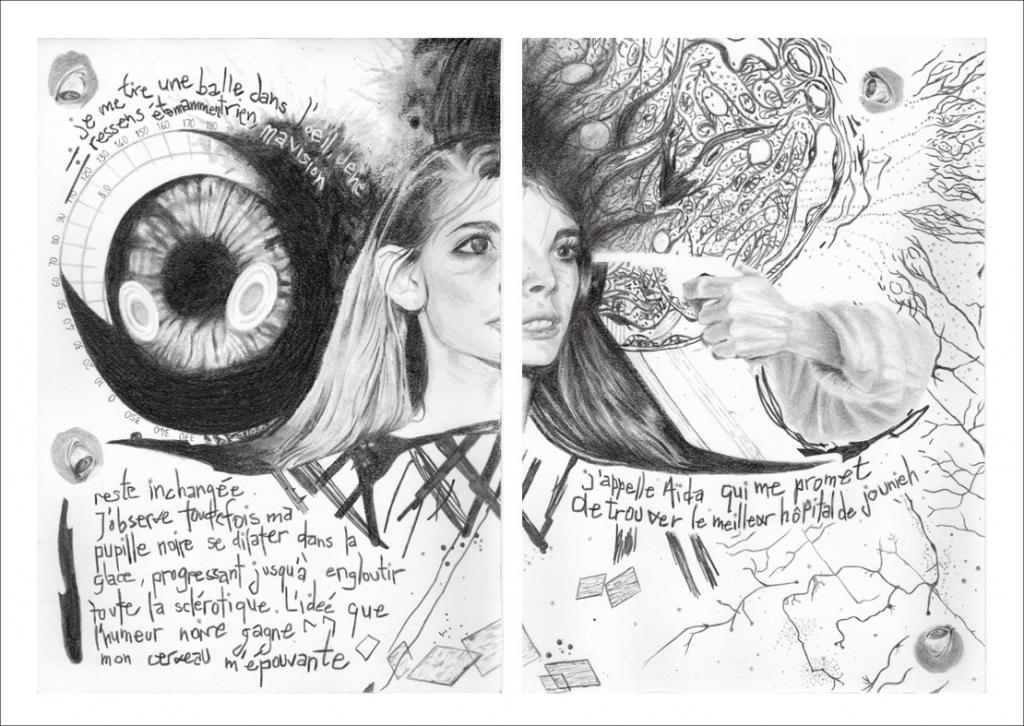 je me tire une balle dans l'oeil,
ressens étonnamment rien ma vision
180
170
160
150
140
130
120
110
90
80
70
60
50
40
30
20
10
0
350
340
330
reste inchangée.
J'observe toutefois ma
pupille noire se dilater dans la
glace, progressant jusqu'à engloutir
toute la sclérotique. L'idée que
l'humeur noire gagne
mon cerveau m'épouvante
j'appelle Aïda qui me promet
de trouver le meilleur hôpital de jounieh